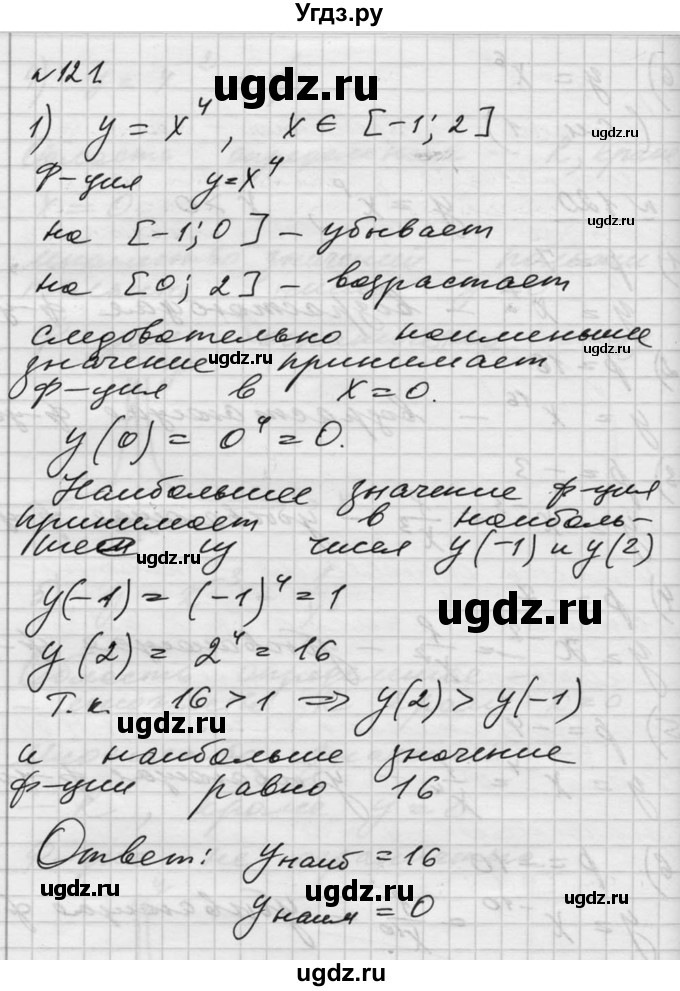 Угдз.ру
№121.
ugdz.ru
1) y = x⁴, x ∈ [-1; 2]
ugdz.ru
ф-ция y=x⁴
ugdz.ru
на [-1; 0] – убывает
ugdz.ru
на [0; 2] – возрастает
ugdz.ru
следовательно наименьшее
значение принимает
ugdz.ru
ugdz.ru
ф-ция в x=0.
y(0) = 0⁴ = 0.
Наибольшее значение ф-ция
принимает в наиболь-
шем из чисел y(-1) и y(2)
ugdz.ru
y(-1) = (-1)⁴ = 1
ugdz.ru
y(2) = 2⁴ = 16
т.к. 16 > 1 ⇒ y(2) > y(-1)
ugdz.ru
и наибольше значение
ф-ции равно 16
Ответ: y наиб = 16
ugdz.ru
ugdz.ru
ugdz.ru
y наим = 0
ugdz.ru